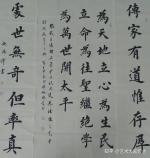 傳家有道惟存厚
為天地立心為生民
立命為往聖繼絕學
為萬世開太平
處世無奇但率真